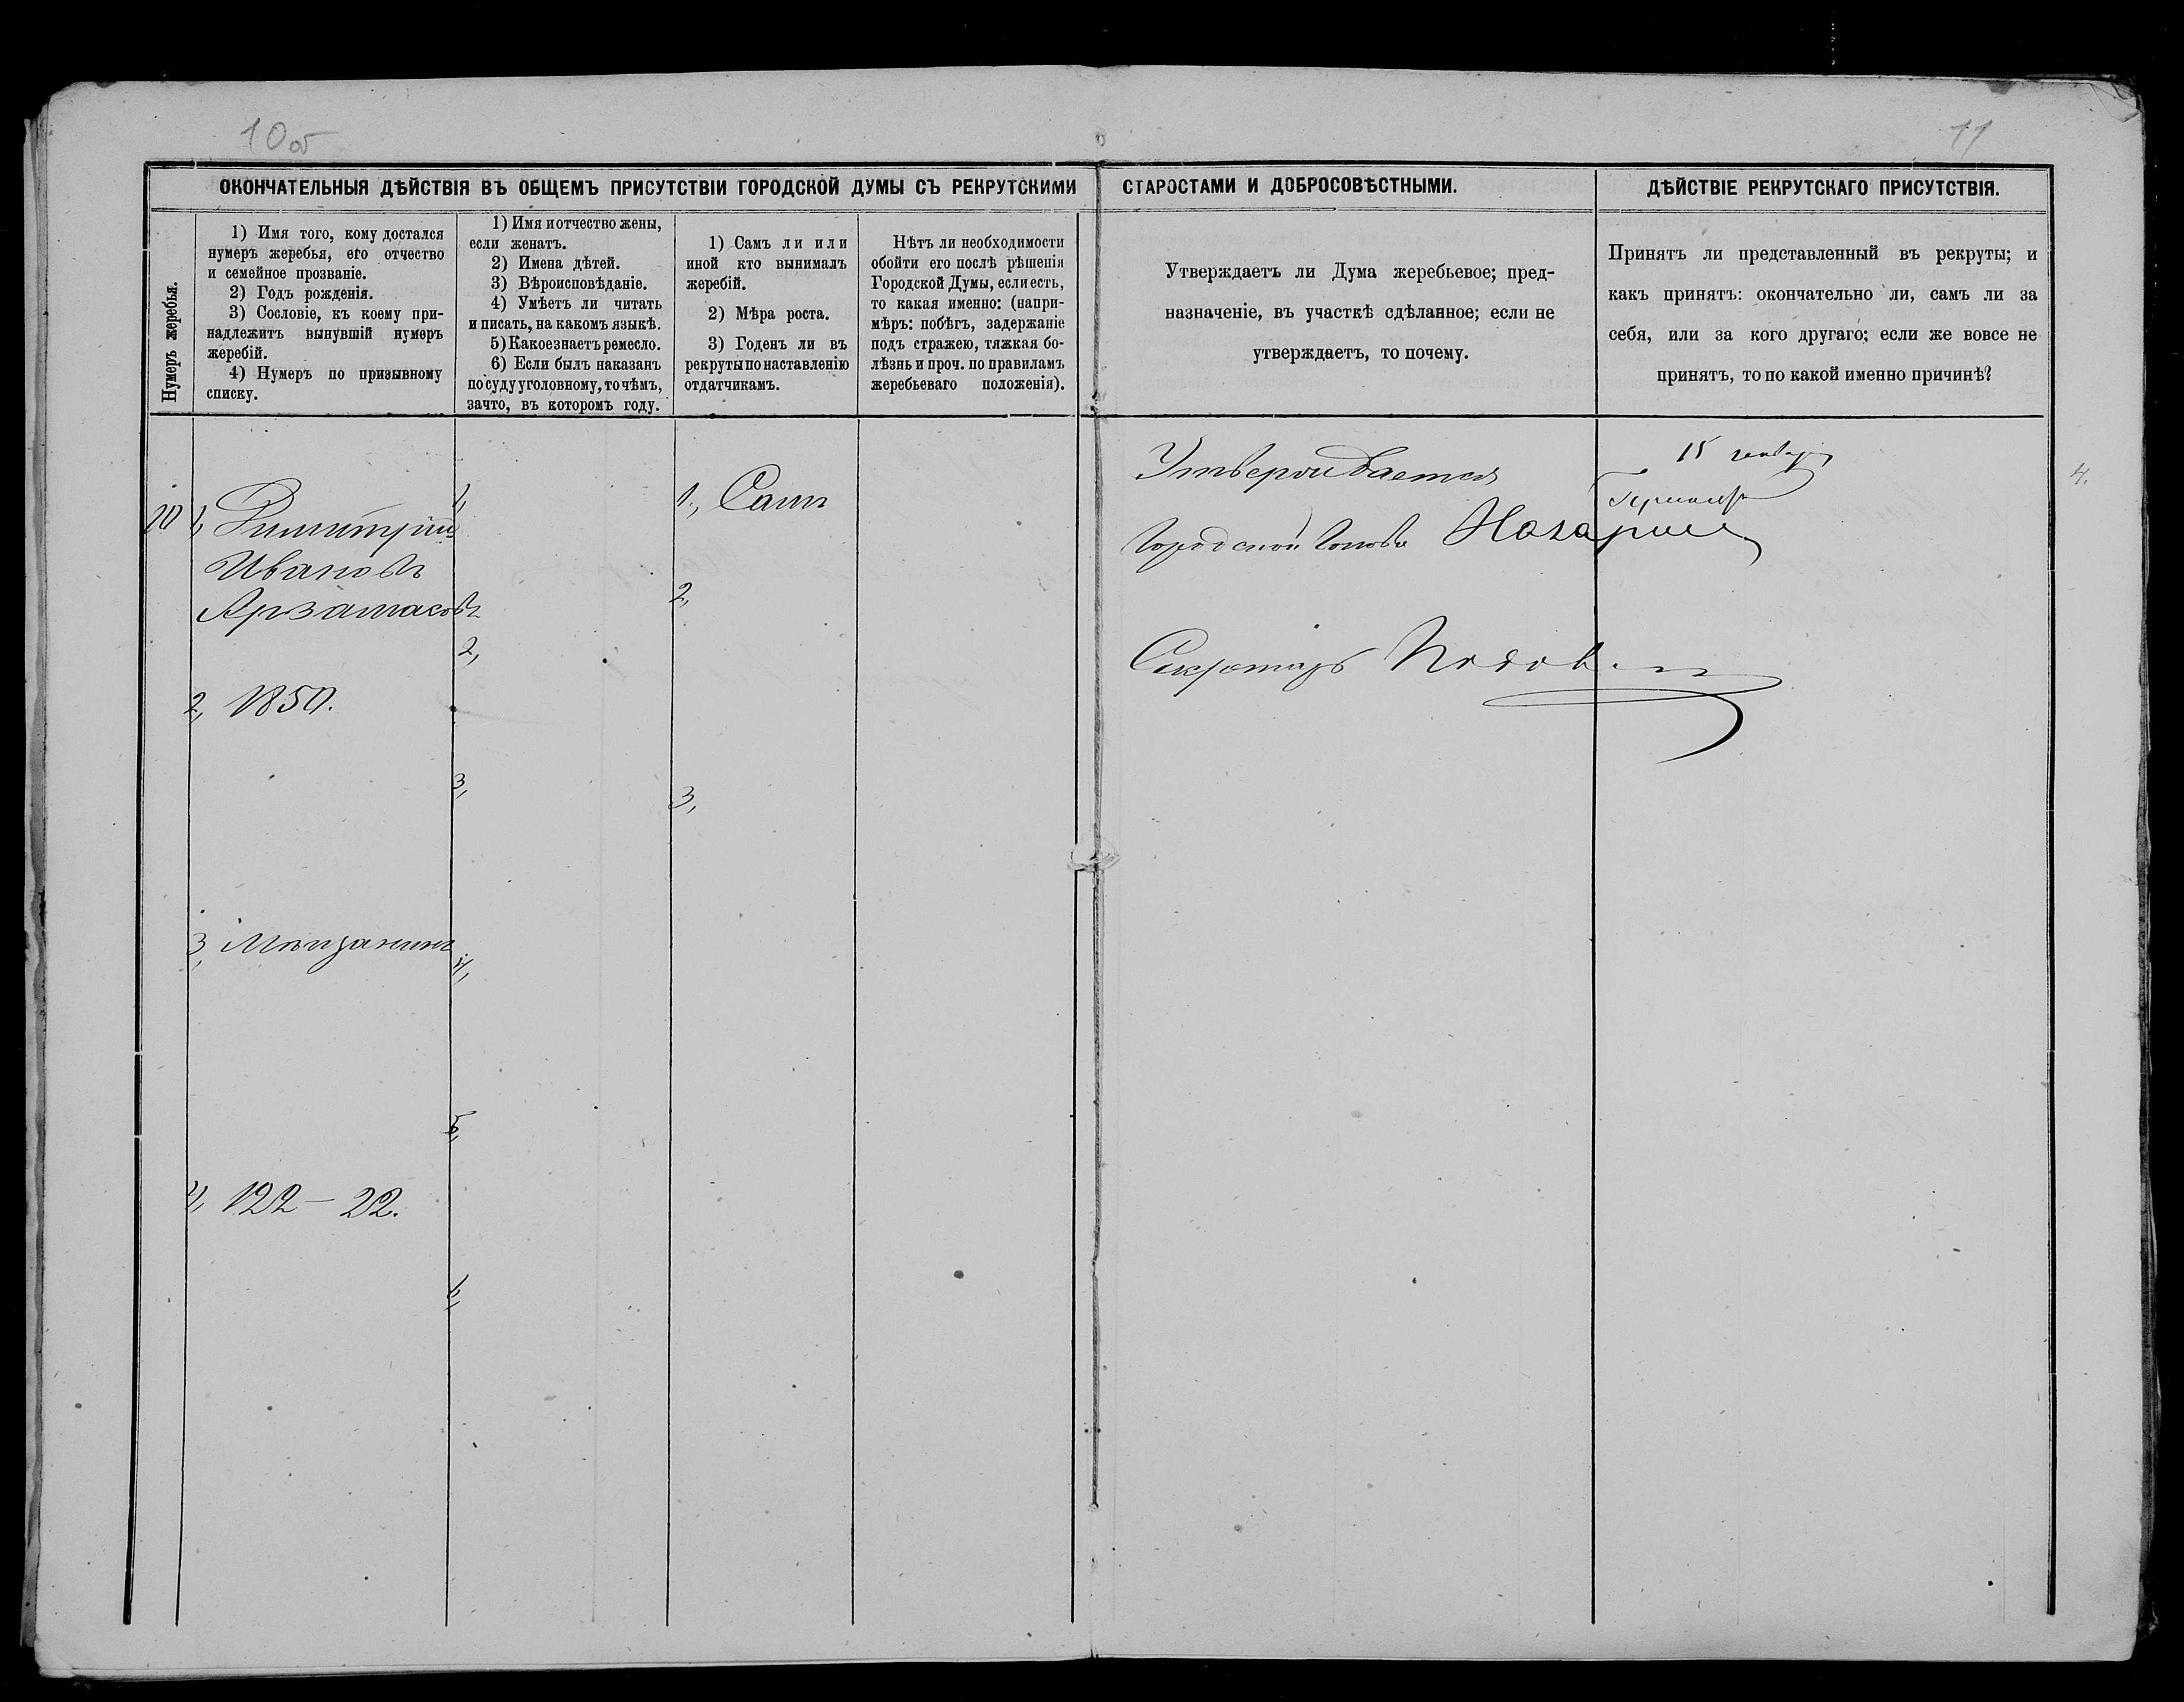 10об
11
ОКОНЧАТЕЛЬНЫЯ ДѢЙСТВІЯ ВЪ ОБЩЕМЪ ПРИСУТСТВІИ ГОРОДСКОЙ ДУМЫ СЪ РЕКРУТСКИМИ СТАРОСТАМИ И ДОБРОСОВѢСТНЫМИ.
ДѢЙСТВІЕ РЕКРУТСКАГО ПРИСУТСТВІЯ.
Нумеръ жеребья.
1) Имя того, кому достался
нумеръ жеребья, его отчество
и семейное прозваніе.
2) Годъ рожденія.
3) Сословіе, къ коему при-
надлежитъ вынувшій нумеръ
жеребій.
4) Нумеръ по призывному
списку.
1) Имя и отчество жены,
если женатъ.
2) Имена дѣтей.
3) Вѣроисповѣданіе.
4) Умѣетъ ли читать
и писать, на какомъ языкѣ.
5) Какое знаетъ ремесло.
6) Если былъ наказанъ
по суду уголовному, то чѣмъ,
за что, въ которомъ году.
1) Самъ ли или
иной кто вынималъ
жеребій.
2) Мѣра роста.
3) Годенъ ли въ
рекруты по наставленію
отдатчикамъ.
Нѣтъ ли необходимости
обойти его послѣ рѣшенія
Городской Думы, если есть,
то какая именно: (напри-
мѣръ: побѣгъ, задержаніе
подъ стражею, тяжкая бо-
лѣзнь и проч. по правиламъ
жеребьеваго положенія).
Утверждаетъ ли Дума жеребьевое; пред-
назначеніе, въ участкѣ сдѣланное; если не
утверждаетъ, то почему.
Принятъ ли представленный въ рекруты; и
какъ принятъ: окончательно ли, самъ ли за
себя, или за кого другаго; если же вовсе не
принятъ, то по какой именно причинѣ?
10
1, Димитрій
Ивановъ
Арзамасовъ
2, 1850.
3, Мѣщанинъ
4, 122 – 22.
1,
2,
3,
4,
5,
6,
1, Самъ
2,
3,
Утверждается
Городской Голова
Секретарь
15 генваря
4.